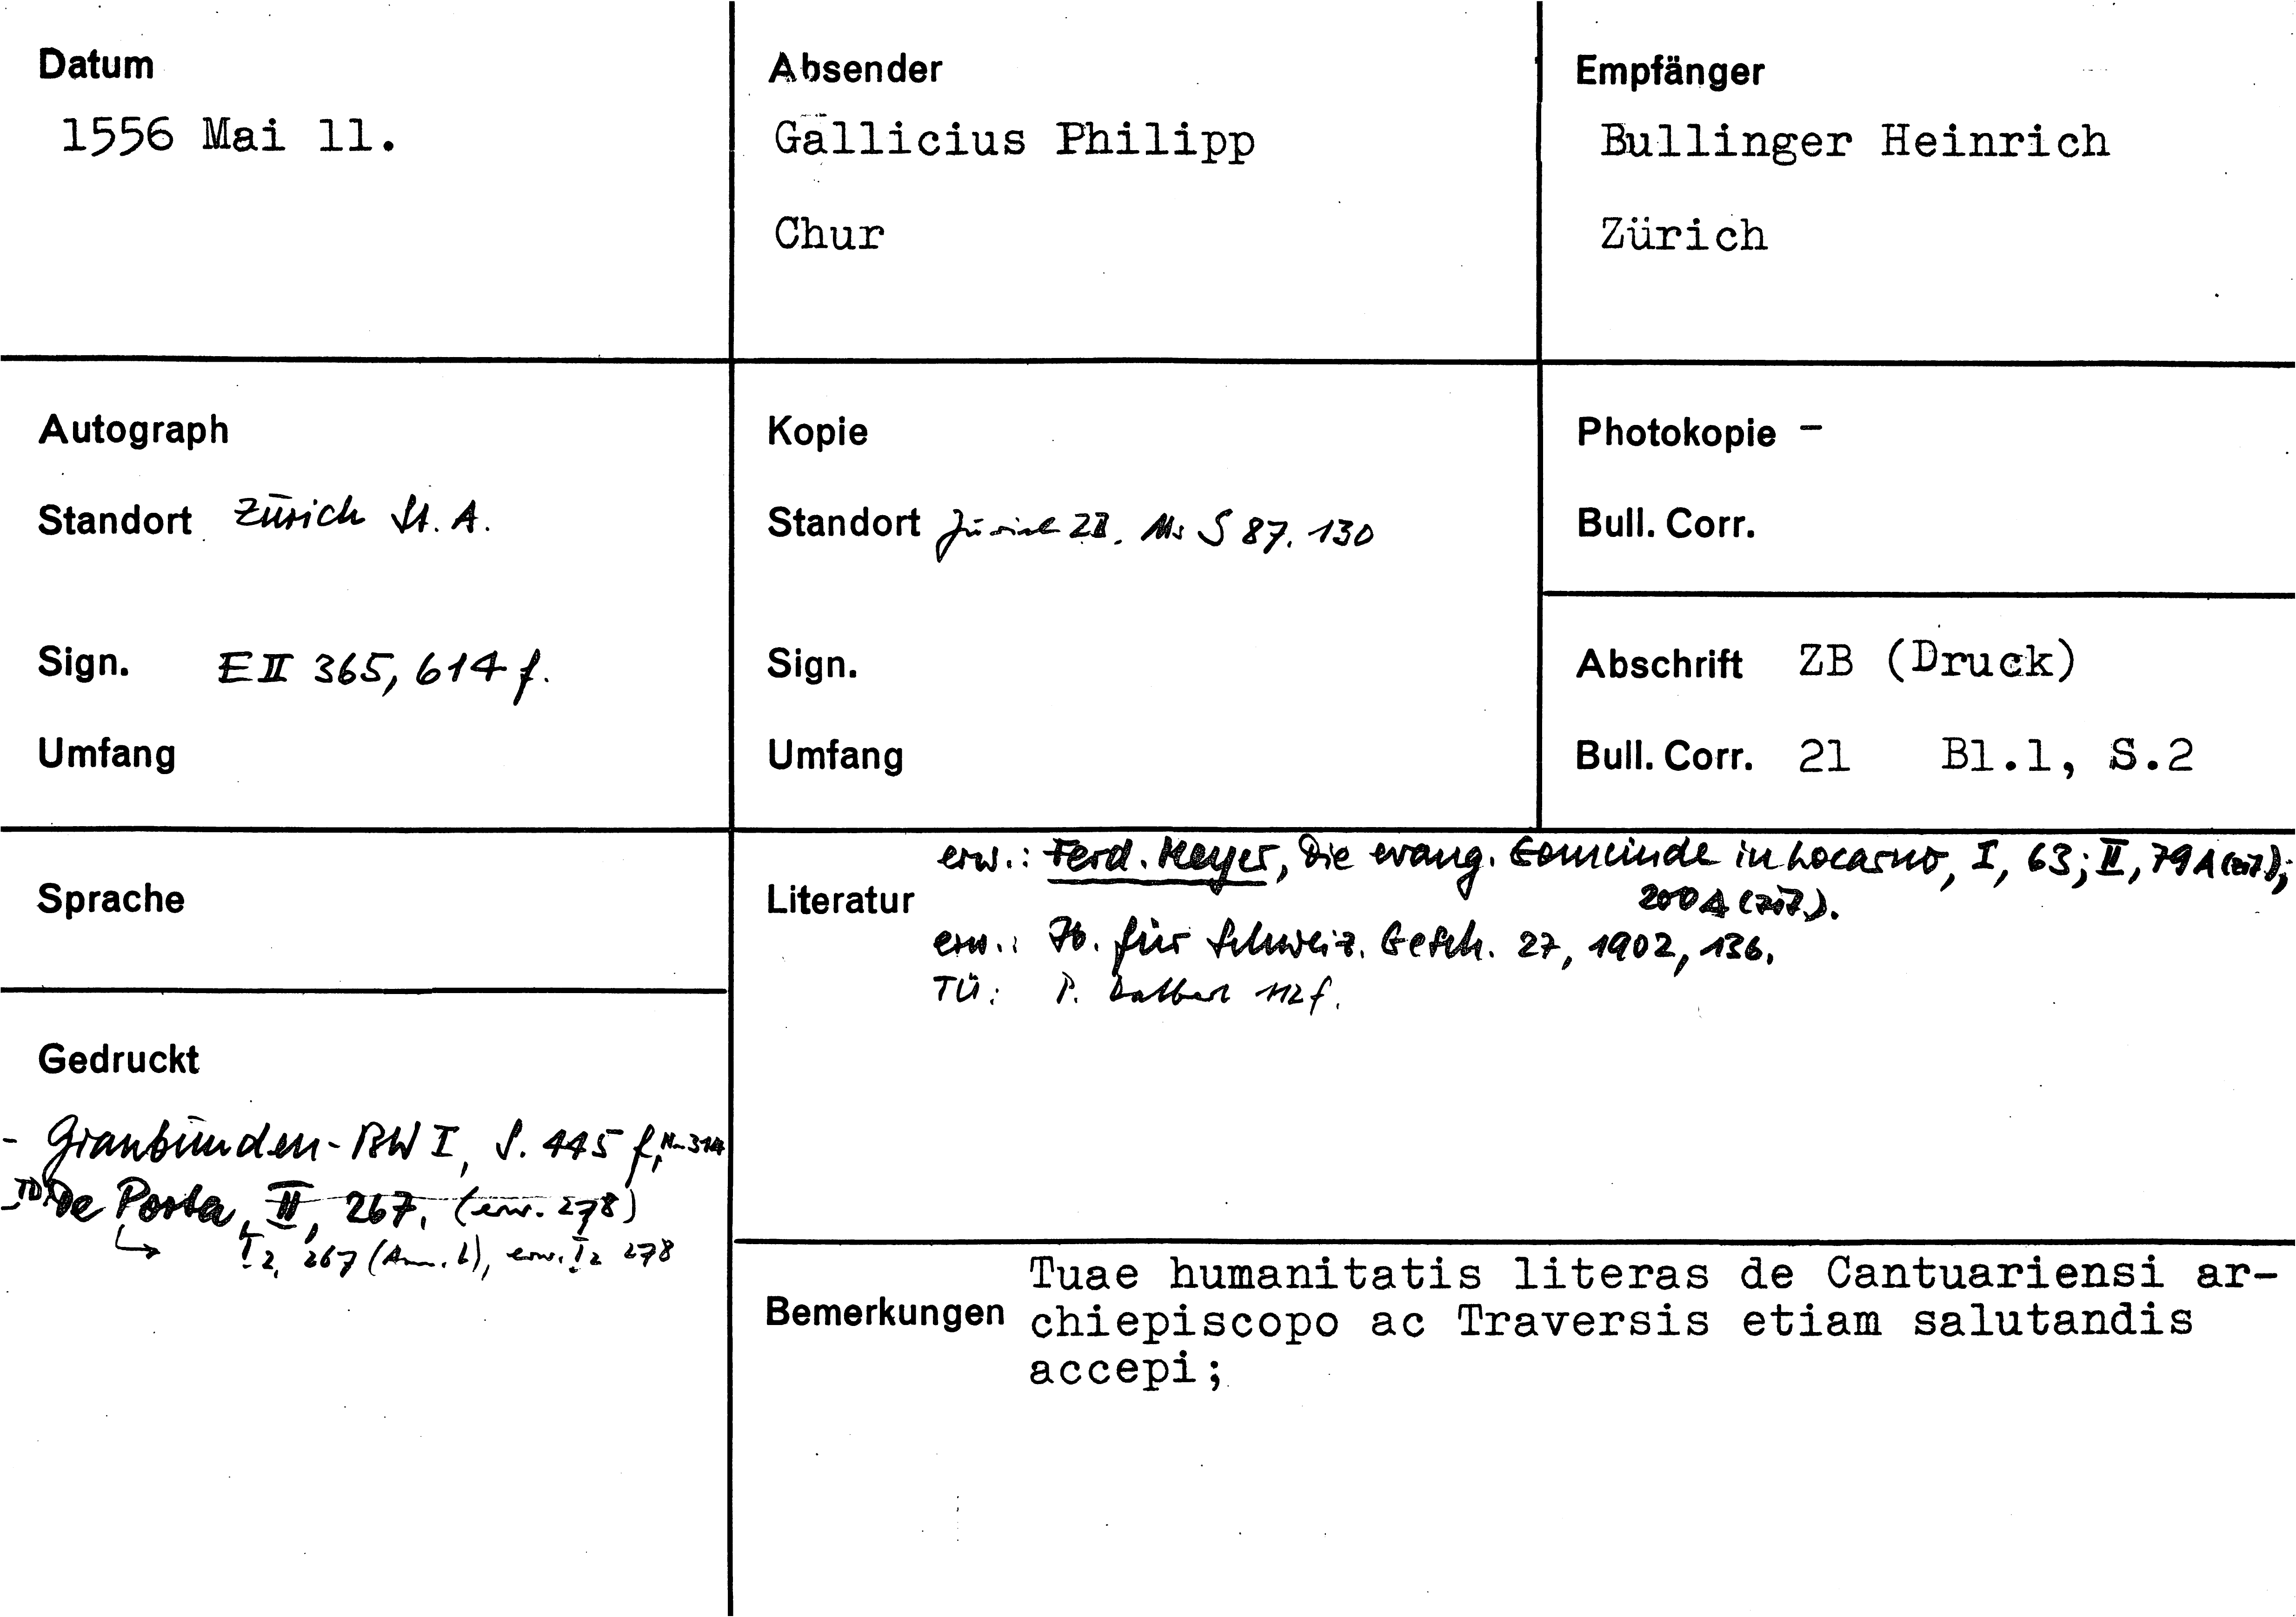 Datum
1556 Mai 11.
Absender
Gallicius Philipp
Chur
Empfänger
Bullinger Heinrich
Zürich
Autograph
Standort Zürich St. A.
Sign. E II 365, 614 f.
Umfang
Kopie
Standort Zürich ZB. Ms S 87. 130
Sign.
Umfang
Photokopie -
Bull. Corr.
Abschrift ZB (Druck)
Bull. Corr. 21 Bl.1, S.2
Sprache
Gedruckt
- Graubünden-BW I, S. 445 f, Nr 314
- TD. De Porta, II, 267. (erw. 278)
↳ I 2, 267 (Anm. b), erw. I 2 278
Literatur
erw.: Ferd. Meyer, Die evang. Gemeinde in Locarno, I, 63; II, 79 A (zit);
200 A (zit.).
erw.: Jb. für Schweiz. Gesch. 27, 1902, 136.
TÜ: P. Dalbert 112 f.
Bemerkungen
Tuae humanitatis literas de Cantuariensi ar-
chiepiscopo ac Traversis etiam salutandis
accepi;